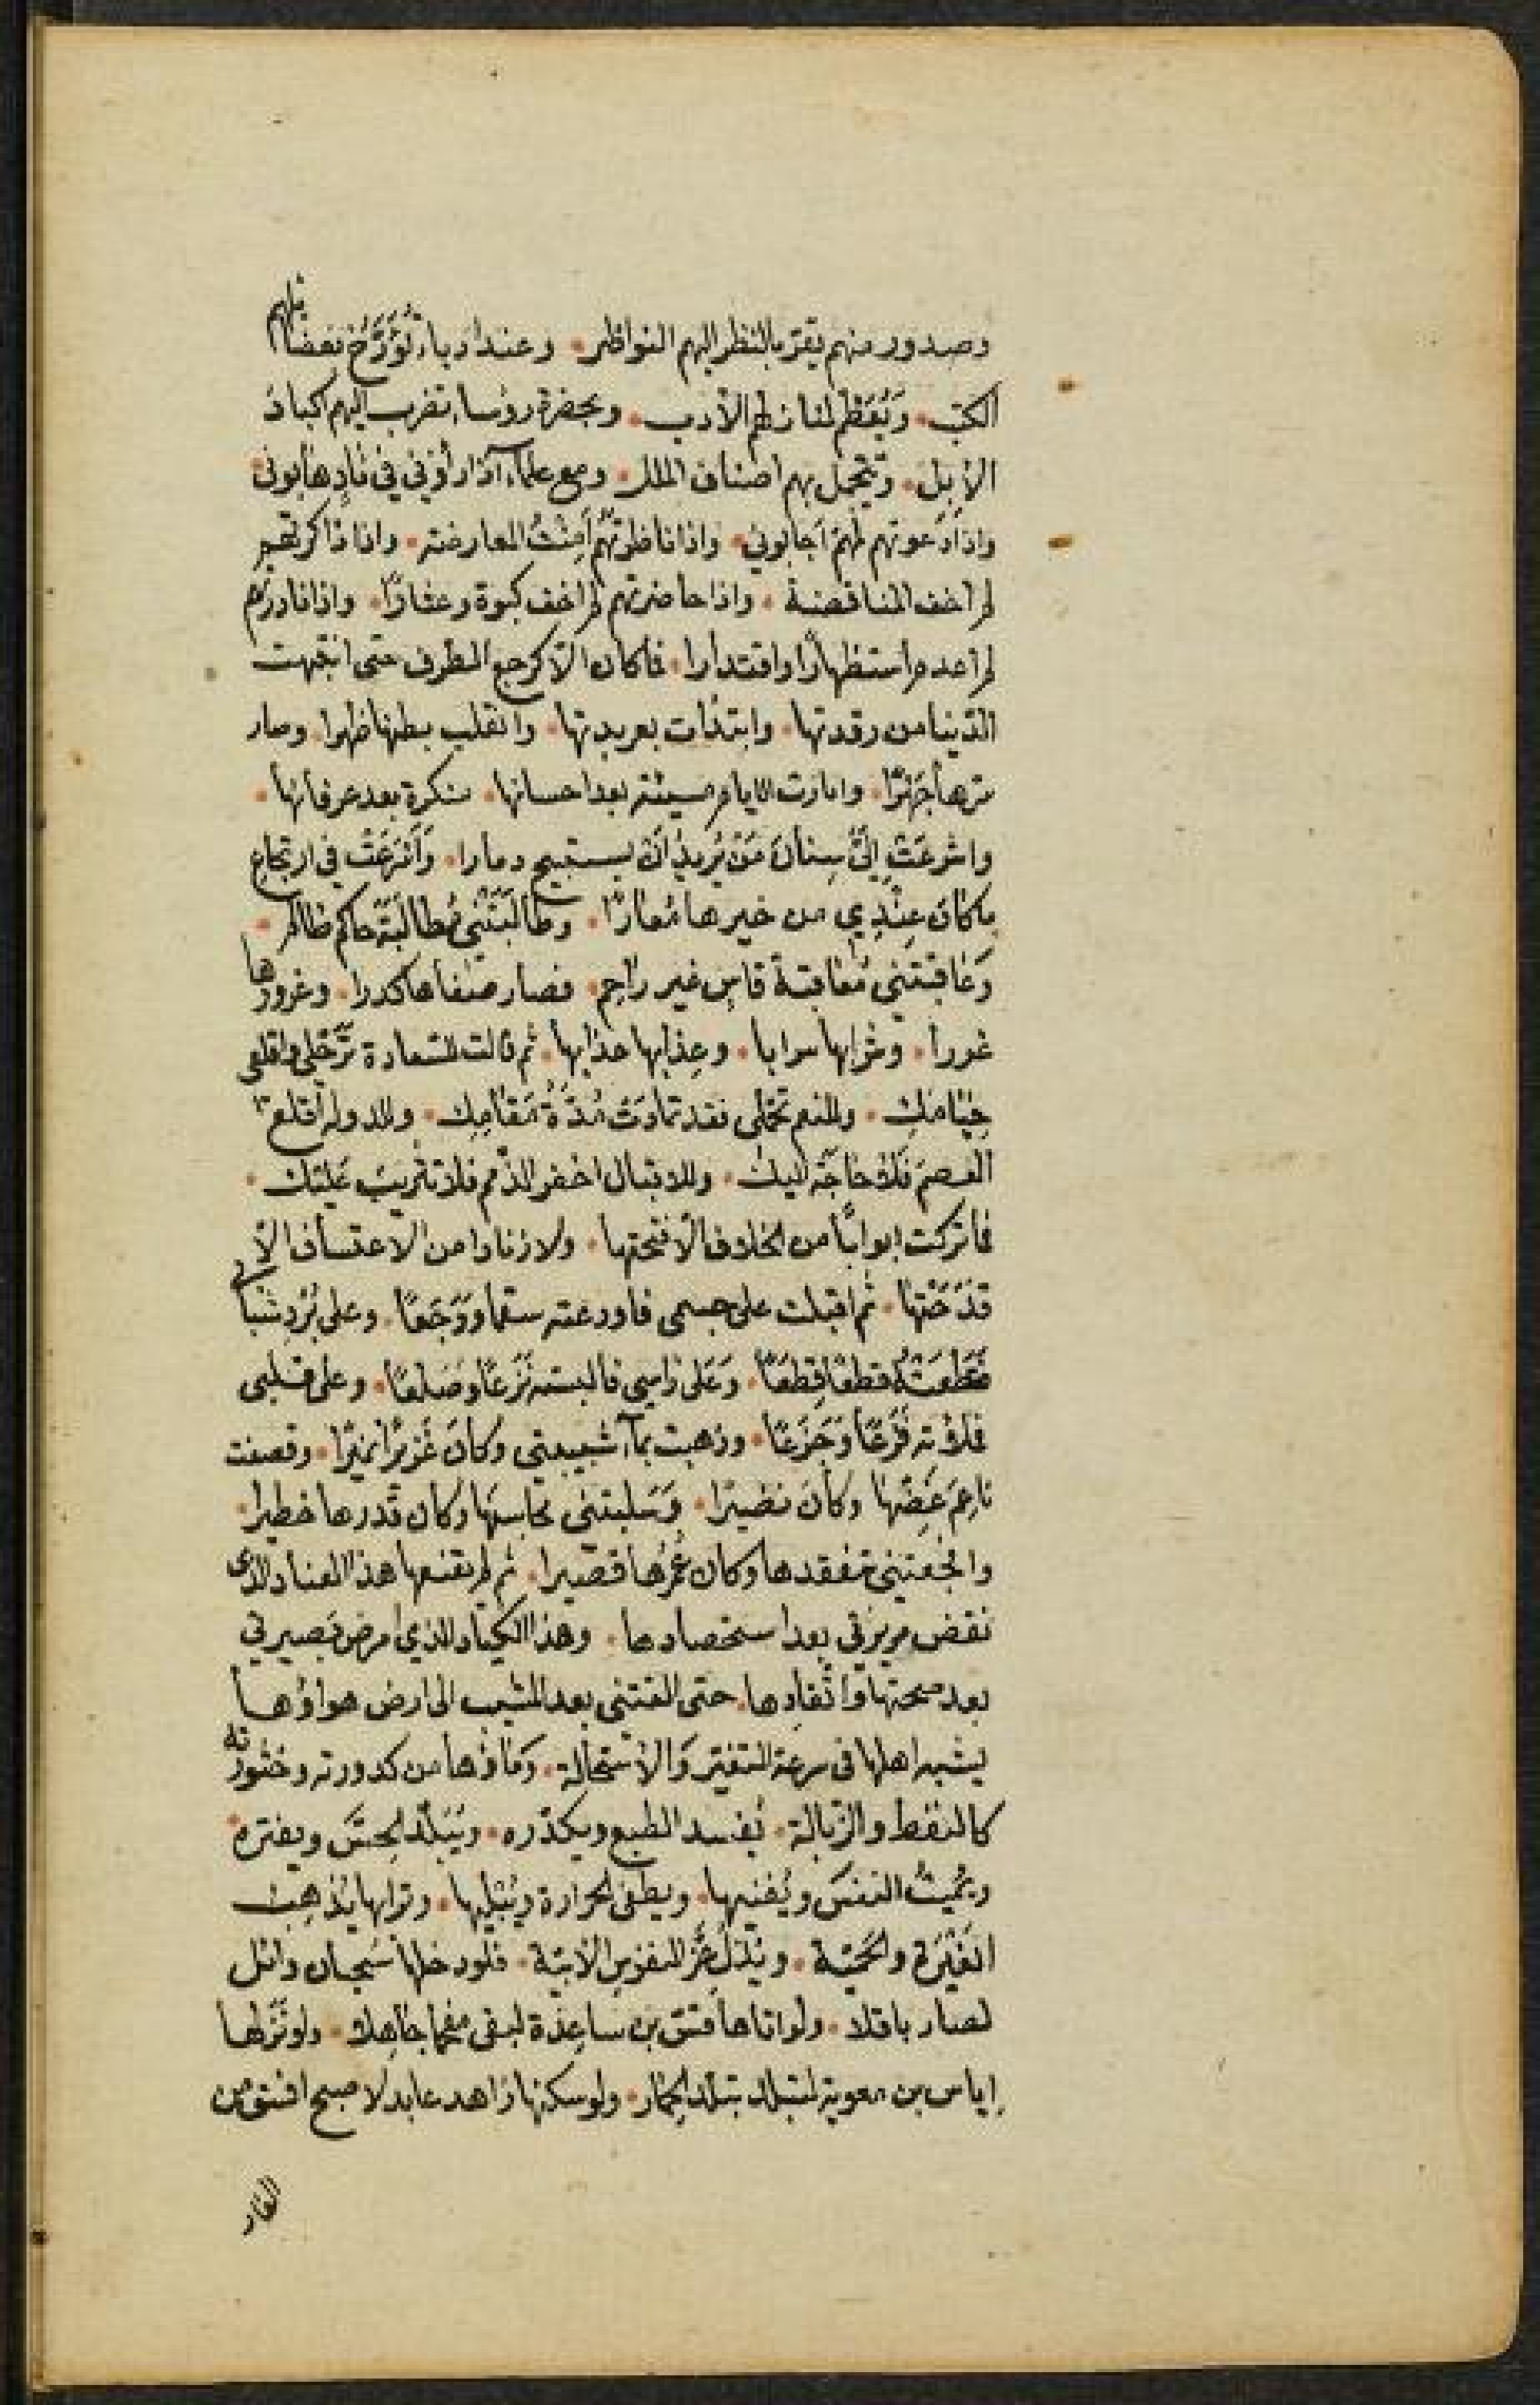 وصدور منهم تقر بالنظر اليهم النواظر . وعند ادباء تُؤَرَّخ بفضائلهم
الكتب . وتعظم لمنازلهم الأدب . وبحضرة رؤسا تضرب إليهم اكباد
الإبل . وتتجمل بهم اصناف الملل . ومع علماء اذا رأوني في نادٍ هابوني
واذا دعوتهم لمهم اجابوني . واذا ناظرتهم أمنت المعارضة . واذا ذاكرتهم
لم اخف المناقضة . واذا حاضرتهم لم اخف كبوة وعثارًا . واذا نادرتهم
لم اعدم استظهارًا واقتدارا . فما كان الا كرجع الطرف حتى انتبهت
الدنيا من رقدتها . وابتدأت بعربدتها . وانقلب بطنها ظهرا . وصار
سرها جهرًا . وعادت الايام مسيئة بعد احسانها . منكرة بعد عرفانها .
واشرعَتْ إليَّ سِنانَ مَنْ يُريدُ انْ يستبيح دمارا . وَأسْرَعَتْ في ارتجاع
ما كان عِنْدِي من خيرها مُعارًا . وطالَبَتْني مُطالَبَةَ حاكم ظالم .
وَعَاقبَتني مُعَاقبَةَ قاسٍ غير راحم . فصار صفاها كدرا . وغرورها
غررا . وشرابها سرابا . وعِذابها عذابها . ثم قالت للسعادة ترحّلي واقلعي
خِيَامَكِ . وللنعم تخلي فقد تمادَتْ مُدَّةُ مَقَامِكِ . وللدولة اقلعي
العصم فَلا حَاجَة إليك . وللاقبال اخفر الذمم فلا تثريب عليك .
فما تركت ابوابًا من الخلاف الا فتحتها . ولا زنادا من الاعتساف الا
قَدَحَتْها . ثم اقبلت على جسمي فاودعته سقما ووَجَعًا . وعلى بُرْدِ شبابي
فقَطعَتْهُ قطعًا قِطَعًا . وَعَلى رَاسِي فالبسته نَزَعًا وصَلعًا . وعلى قلبي
فملأته فَزَعًا وَجَزَعًا . وذهبت بماء شبيبتي وكانَ غَزِيرًا نميرًا . وقصفت
ناعِمَ غُصْنها وكانَ نضيرًا . وَسلبتني محاسِنَها وكان قدرها خطيرا .
وافجعتني بفقدها وكان عُمْرُها قصيرا . ثم لم يقنعها هذا العناد الذي
نقض مريرتي بعد استحصادها . وهذا الكياد الذي امرض بَصيرتي
بعد صحتها واتّقادها . حتى القتني بعد المشيب الى ارض هواؤها
يشبه اهلها في سرعة التغيّر وَالاسْتحالة . وَماؤها من كدورته وخثورته
كالنفط والزبالة . يُفسد الطبع ويكدّره . ويُبَلّد الحسَّ ويفتره .
ويُميتُ النفسَ ويُفنيها . ويطفئ الحرارة ويُبْليها . وترابها يُذهِبُ
الغَيْرَة والحَميّة . ويُذلّ عِزّ النفوس الأبيّة . فلو دخلها سَحبان وائل
لصار باقلا . ولو اتاها قسّ بن ساعِدة لبقي مفحما جاهلا . ولو نَزلها
إياس بن معوية لتبلّد تبلّد الحِمَار . ولو سكنها زاهد عابد لاصبح افسق من
الفار